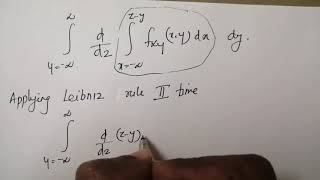 ∞ ∫ y=-∞ d/dz ∫ z-y x=-∞ fxy(x,y) dx dy.
Applying Leibniz rule II time
∞ ∫ y=-∞ d/dz (z-y)